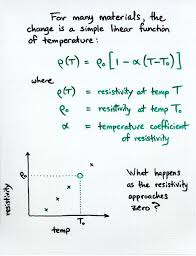 For many materials, the
change is a simple linear function
of temperature:
ρ(T) = ρ₀ [1 - α (T-T₀)]
where
ρ(T) = resistivity at temp T
ρ₀ = resistivity at temp T₀
α = temperature coefficient
of resistivity
What happens
as the resistivity
approaches
zero?
resistivity
T₀
temp